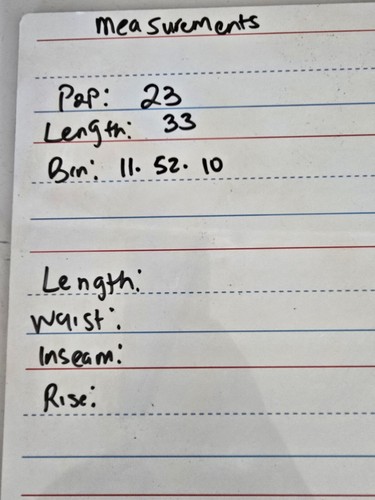 Measurements
P2P: 23
Length: 33
Bin: 11. 52. 10
Length:
Waist:
Inseam:
Rise: